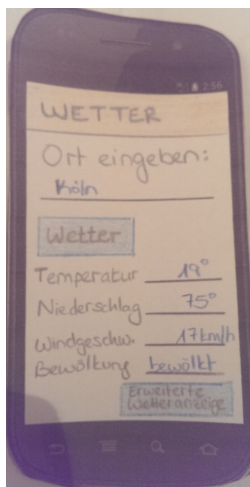 2:56
WETTER
Ort eingeben:
Köln
Wetter
Temperatur 19°
Niederschlag 75°
Windgeschw. 17km/h
Bewölkung bewölkt
Erweiterte
Wetteranzeige